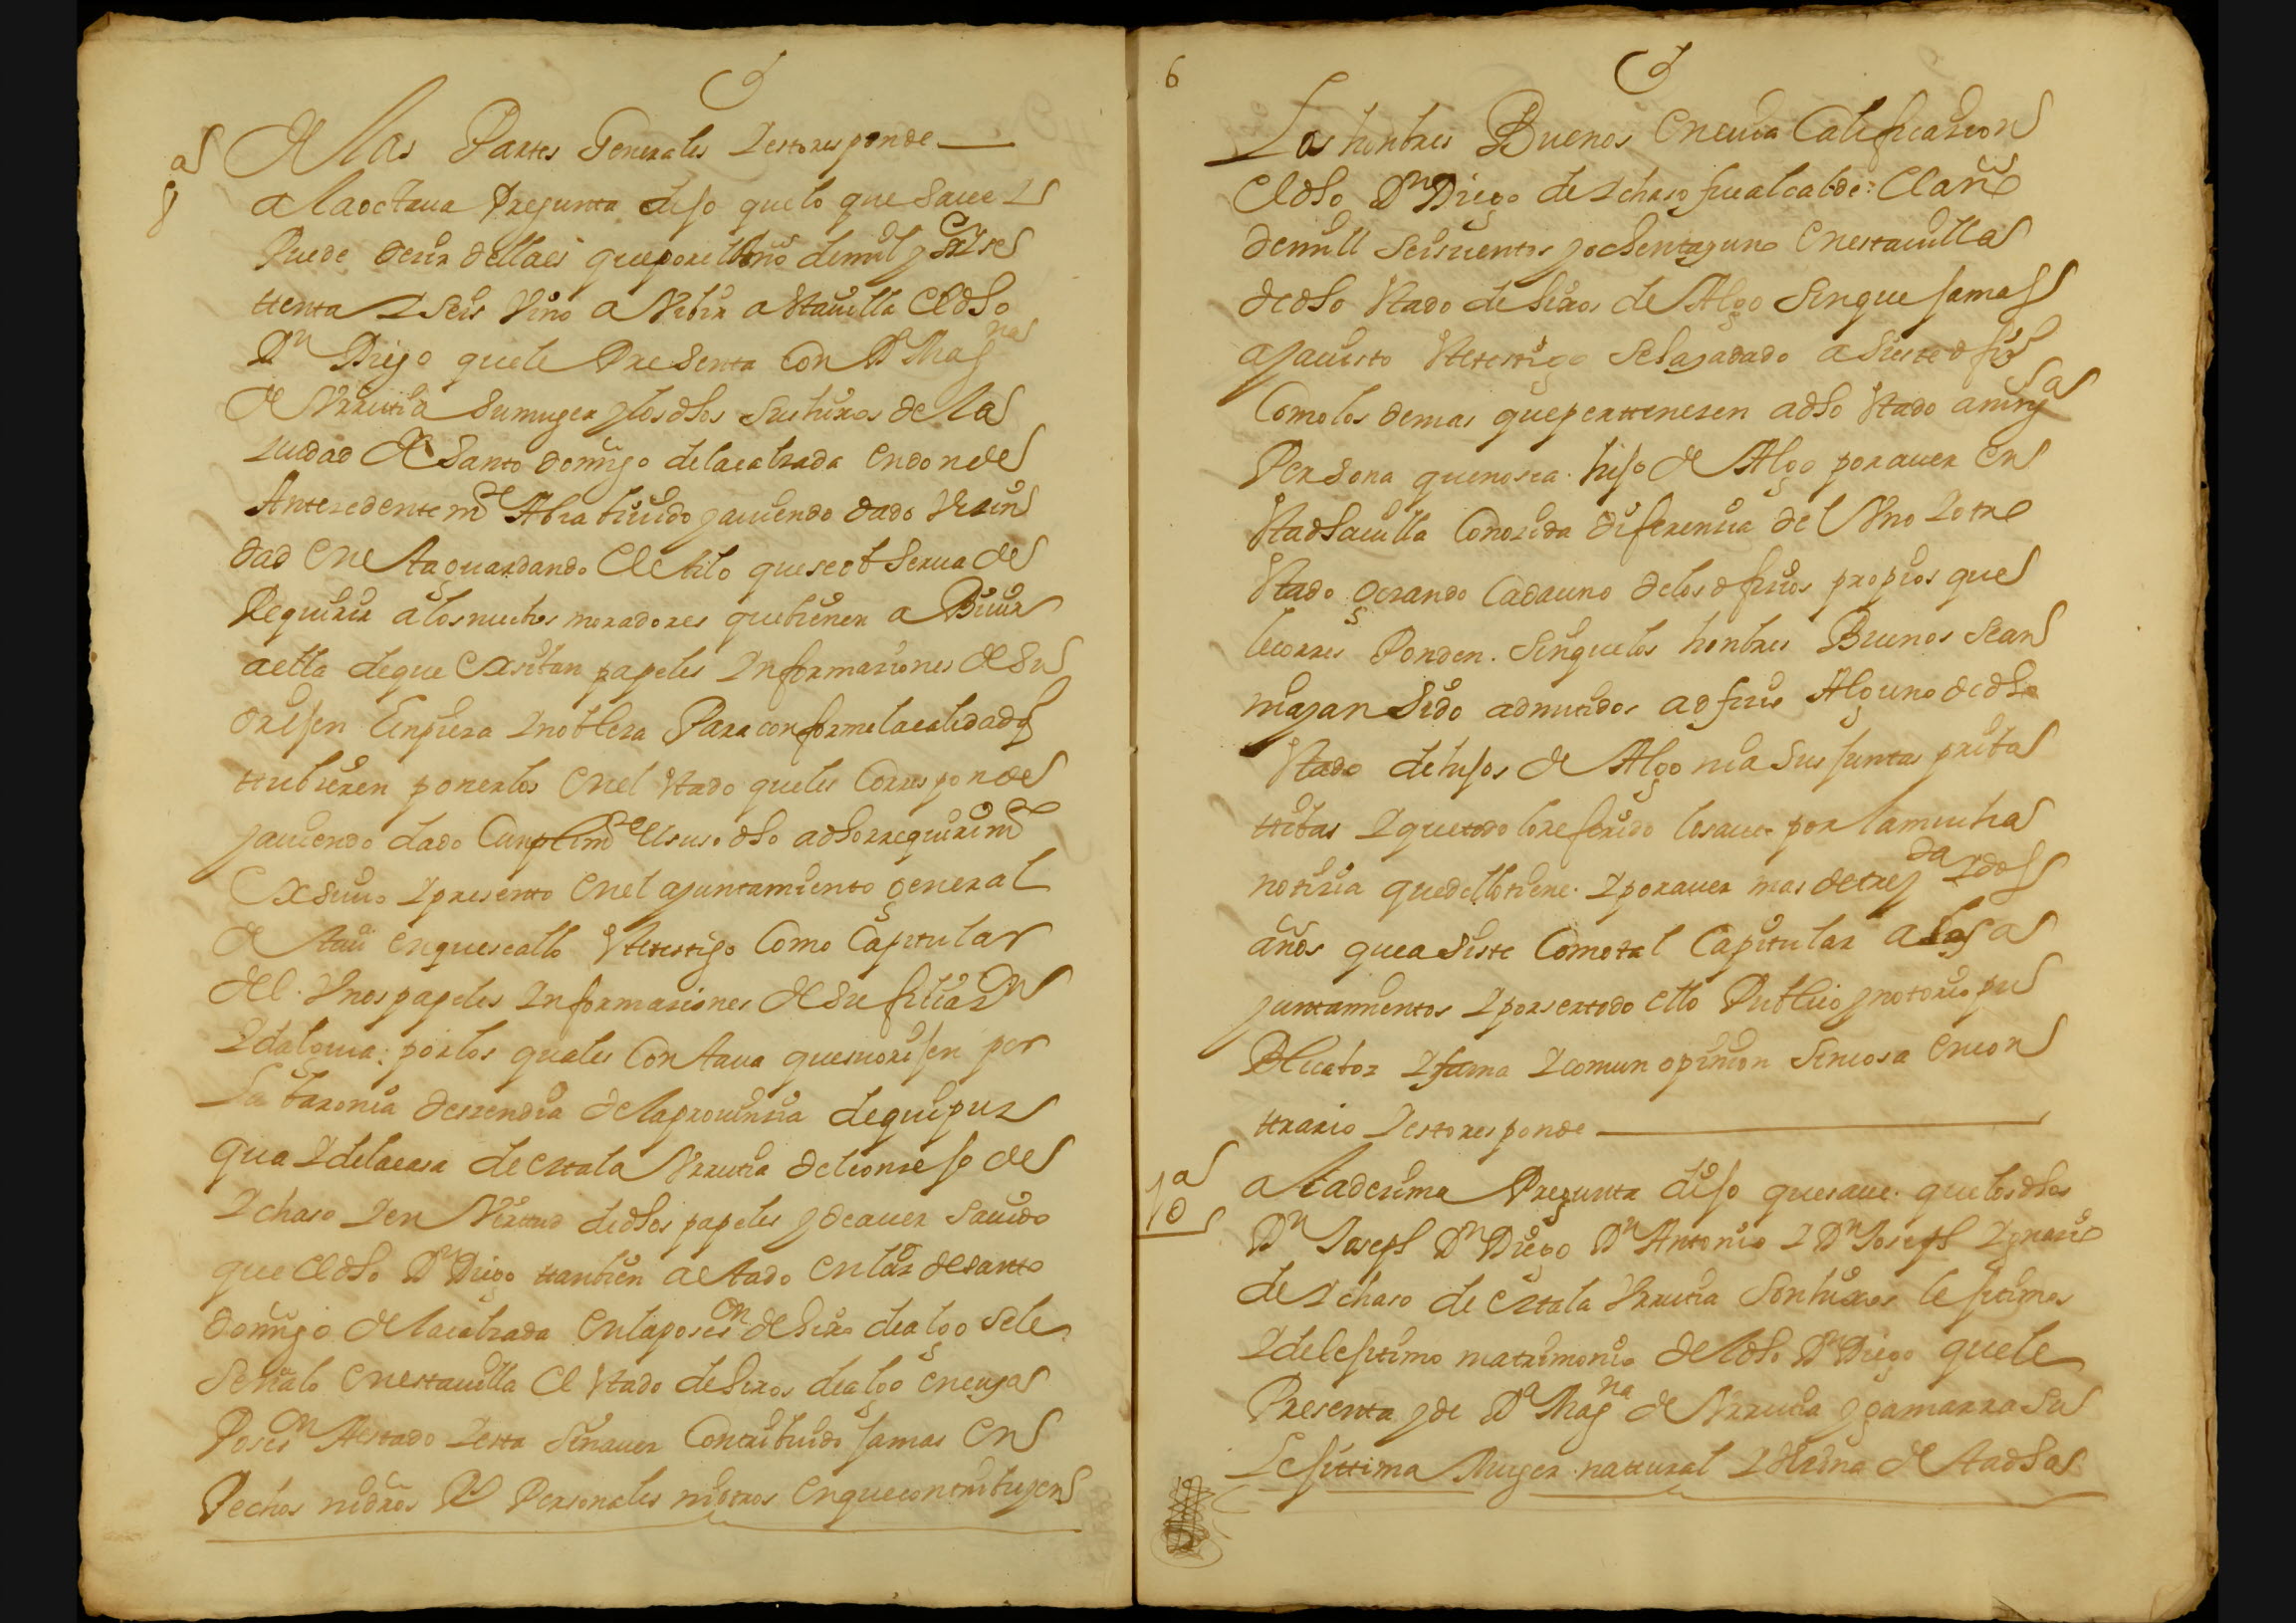 de las Partes Generales Yestoresponde
8ª
a la octaua Pregunta dijo que lo que saue Y
Puede decir dellaes que por el Año de mil y sse
ttenta Y seis Vino a Vibir a Stauilla el dho
Dn Diego que le Presenta Con Dª Magna
de Vrrutia su muger y los dhos sus hixos de la
ciudad de Santo domigo de la calzada en donde
Antezedentemte Abia biuido y auiendo dado Vezin
dad en esta guardando el estilo que se obserua de
Requirir a los nuebos moradores que bienen a Biuir
a ella de que Exsiban papeles Informaziones de su
orijen limpieza Y nobleza Para conforme la calidad q
ttubieren ponerlos en el stado que les Corresponde
y auiendo dado Cunplimto el suso dho a dho rrequirimto
Exsiuio Y presento en el ayuntamiento general
de sta uª en que se allo este testigo Como Capitular
del. Vnos papeles Informaziones de su filiazon
Ydalguia: por los quales Constaua que su orijen por
la baronia deszendia de la prouinzia de guipuz
qua Y de la casa de Ettala Vrrutia del conzejo de
Ychaso Y en Virtud de dhos papeles y de auer sauido
que el dho Dn Diego tanbien a estado en la z de santo
domigo de la calzada en la poseson de hixo de algo se le
señalo en esta uilla el stado de hixos de algo en cuya
Poseson A estado Y esta sin auer Contribuido jamas en
Pechos ni dros Rs Personales ni otros en que contribuyen
6
Los honbres Buenos en cuia Calificazion
el dho Dn Diego de Ychaso fue alcalde: el año
de mill seiscientos y ochenta y uno en esta uilla
de dho stado de hixos de Algo sin que jamas
aya uisto este testigo se le aya dado asiste ofizio
Como los demas que perttenezen a dho stado a ningª
Persona que no sea. hijo de Algo por auer en
sta dha uilla Conozida diferenzia del Vno Y otro
stado gozando Cada uno de los ofizios propios que
le corresPonden. sin que los honbres Buenos sean
ni ayan sido admitidos a ofizio Alguno de dho
stado de hijos de Algo ni a sus juntas priba
ttibas Y que todo lo referido lo saue por la mucha
notizia que dello tiene. Y por auer mas de treynta Y dos
años que asiste Como tal Capitular a los a
yuntamientos Y por ser todo ello Publico y notorio pu
Blicaboz Y fama Y comun opinion sin cosa en con
ttrario Y esto responde
10ª
a la dezima Pregunta dijo que saue. que los dhos
Dn Joseph Dn Diego Dn Antonio Y Dn Joseph Ygnazio
de Ychaso de Ettala Vrrutia son hixos lejitimos
Y de lejitimo matrimonio del dho Dn Diego que le
Presenta y de Dª Magna de Vrrutia y gamarra su
Lejittima Muger natural Y Vezina de sta dha